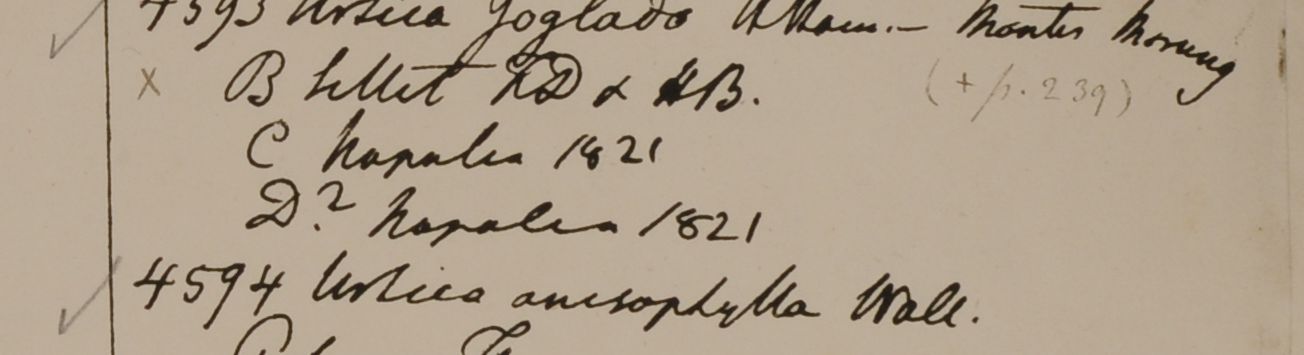 4593 Urtica Joglado Ham. – Montes Morung
B Sillet FD & HB. (+ p. 239)
C Napalia 1821
D.? Napalia 1821
4594 Urtica anisophylla Wall.